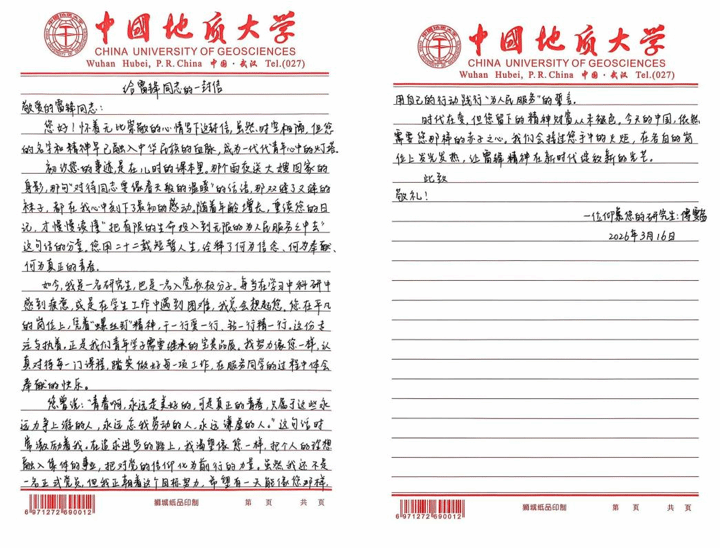 中国地质大学
CHINA UNIVERSITY OF GEOSCIENCES
Wuhan Hubei, P. R. China 中国·武汉 Tel.(027)
给雷锋同志的一封信
敬爱的雷锋同志:
您好!怀着无比崇敬的心情写下这封信。虽然时空相隔,但您
的名字和精神早已融入中华民族的血脉,成为一代代青年心中的灯塔。
初识您的事迹是在儿时的课本里。那个雨夜送大嫂回家的
身影,那句“对待同志要像春天般的温暖”的话语,那双缝了又缝的
袜子,都在我心中刻下了最初的感动。随着年龄增长,重读您的日
记,才慢慢读懂“把有限的生命投入到无限的为人民服务之中去”
这句话的分量。您用二十二载短暂人生,诠释了何为信念、何为奉献、
何为真正的青春。
如今,我是一名研究生,也是一名入党积极分子。每当在学习中科研中
感到疲惫,或是在学生工作中遇到困难,我总会想起您。您在平凡
的岗位上,凭着“螺丝钉”精神,干一行爱一行、钻一行精一行。这份专
注与执着,正是我们青年学子需要继承的宝贵品质。我努力像您一样,认
真对待每一门课程,踏实做好每一项工作,在服务同学的过程中体会
奉献的快乐。
您曾说:“青春啊,永远是美好的,可是真正的青春,只属于这些永
远力争上游的人,永远忘我劳动的人,永远谦虚的人。”这句话时
常激励着我。在追求进步的路上,我渴望像您一样,把个人的理想
融入集体的事业,把对党的信仰化为前行的力量。虽然我还不是
一名正式党员,但我正朝着这个目标努力,希望有一天能像您那样,
6 971272 690012
狮城纸品印制
第 页 共 页
中国地质大学
CHINA UNIVERSITY OF GEOSCIENCES
Wuhan Hubei, P. R. China 中国·武汉 Tel.(027)
用自己的行动践行“为人民服务”的誓言。
时代在变,但您留下的精神财富从未褪色。今天的中国,依然
需要您那样的赤子之心。我们会接过您手中的火炬,在各自的岗
位上发光发热,让雷锋精神在新时代绽放新的光芒。
此致
敬礼!
一位仰慕您的研究生:
2026年3月16日
6 971272 690012
狮城纸品印制
第 页 共 页